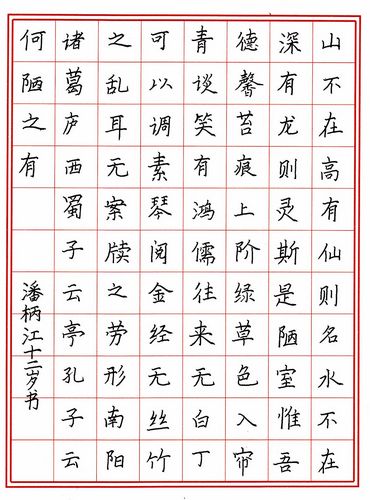 山不在高有仙则名水不在
深有龙则灵斯是陋室惟吾
德馨苔痕上阶绿草色入帘
青谈笑有鸿儒往来无白丁
可以调素琴阅金经无丝竹
之乱耳无案牍之劳形南阳
诸葛庐西蜀子云亭孔子云
何陋之有
潘柄江十二岁书